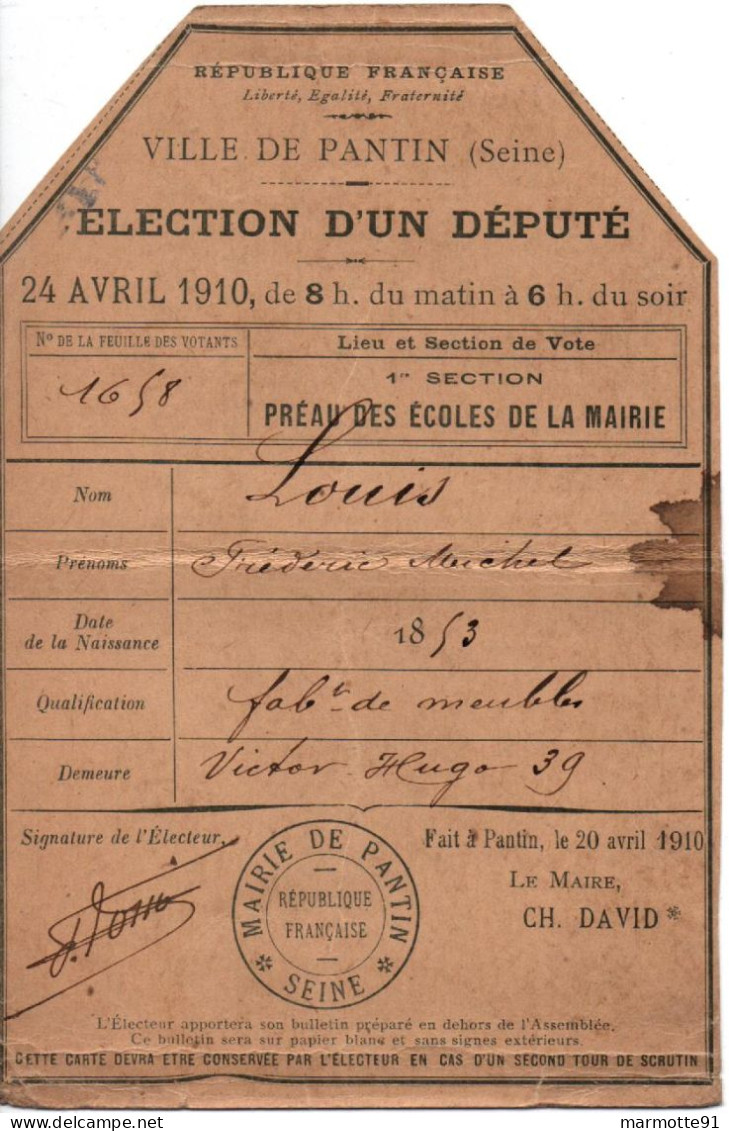 RÉPUBLIQUE FRANÇAISE
Liberté, Egalité, Fraternité
VILLE DE PANTIN (Seine)
ÉLECTION D'UN DÉPUTÉ
24 AVRIL 1910, de 8 h. du matin à 6 h. du soir
Nº DE LA FEUILLE DES VOTANTS
1658
Lieu et Section de Vote
1re SECTION
PRÉAU DES ÉCOLES DE LA MAIRIE
Nom Louis
Prénoms Fréderic Michel
Date
de la Naissance 1853
Qualification fabt de meubles
Demeure Victor Hugo 39
Signature de l'Électeur,
MAIRIE DE PANTIN
RÉPUBLIQUE
FRANÇAISE
* SEINE *
Fait à Pantin, le 20 avril 1910
LE MAIRE,
CH. DAVID *
L'Électeur apportera son bulletin préparé en dehors de l'Assemblée.
Ce bulletin sera sur papier blanc et sans signes extérieurs.
CETTE CARTE DEVRA ETRE CONSERVÉE PAR L'ÉLECTEUR EN CAS D'UN SECOND TOUR DE SCRUTIN
marmotte91